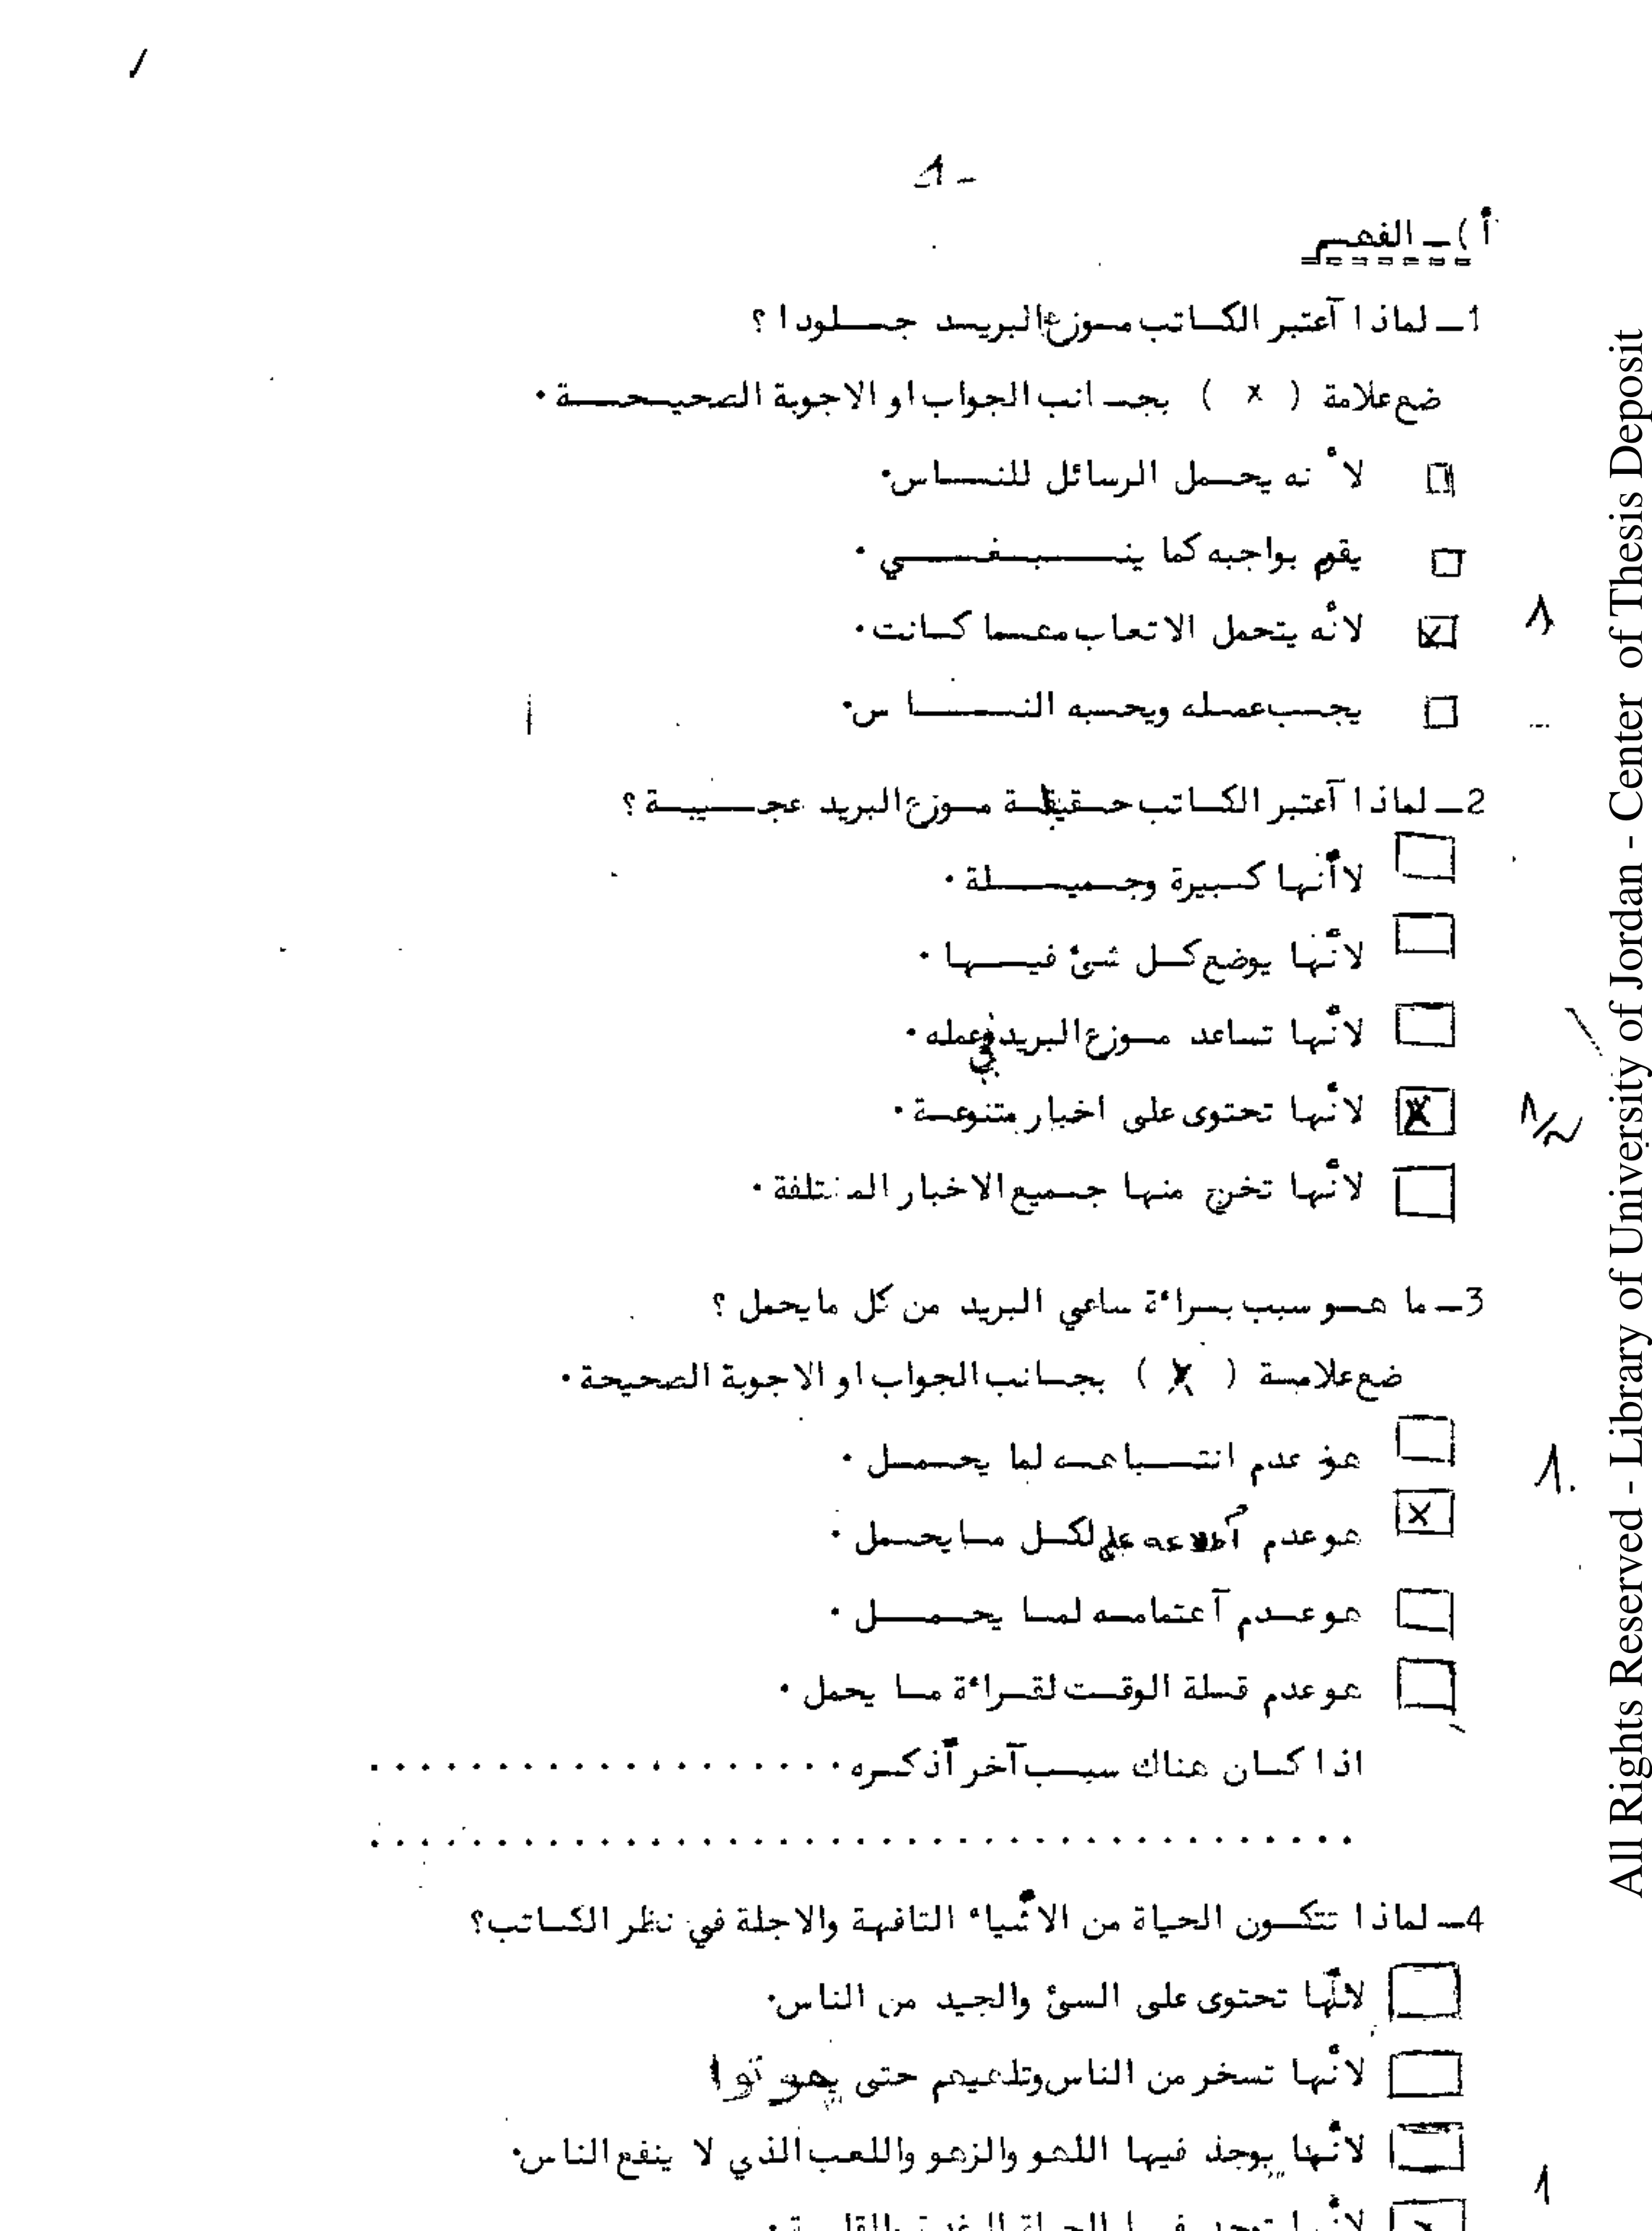 1 -
أ ) ـ الفهم
1 ـ لماذا آعتبر الكاتب موزع البريد جلودا ؟
ضع علامة ( x ) بجانب الجواب او الاجوبة الصحيحة .
لأنه يحمل الرسائل للناس .
يقوم بواجبه كما ينبغي .
لأنه يتحمل الاتعاب مهما كانت .
1
يحب عمله ويحبه الناس .
2 ـ لماذا آعتبر الكاتب حقيبة موزع البريد عجيبة ؟
لأنها كبيرة وجميلة .
لأنها يوضع كل شئ فيها .
لأنها تساعد موزع البريد في عمله .
لأنها تحتوى على اخبار متنوعة .
1/2
لأنها تخرج منها جميع الاخبار المختلفة .
3 ـ ما هو سبب براءة ساعي البريد من كل ما يحمل ؟
ضع علامة ( x ) بجانب الجواب او الاجوبة الصحيحة .
هو عدم انتباهه لما يحمل .
1.
هو عدم آطلاعه على كل ما يحمل .
هو عدم آهتمامه لما يحمل .
هو عدم قلة الوقت لقراءة ما يحمل .
اذا كان هناك سبب آخر أذكره ...................
.......................................
4 ـ لماذا تتكون الحياة من الأشياء التافهة والاجلة في نظر الكاتب ؟
لأنها تحتوى على السئ والجيد من الناس .
لأنها تسخر من الناس وتلهيهم حتى يموتوا
لأنها يوجد فيها اللهو والزهو واللعب الذي لا ينفع الناس .
1
All Rights Reserved - Library of University of Jordan - Center of Thesis Deposit